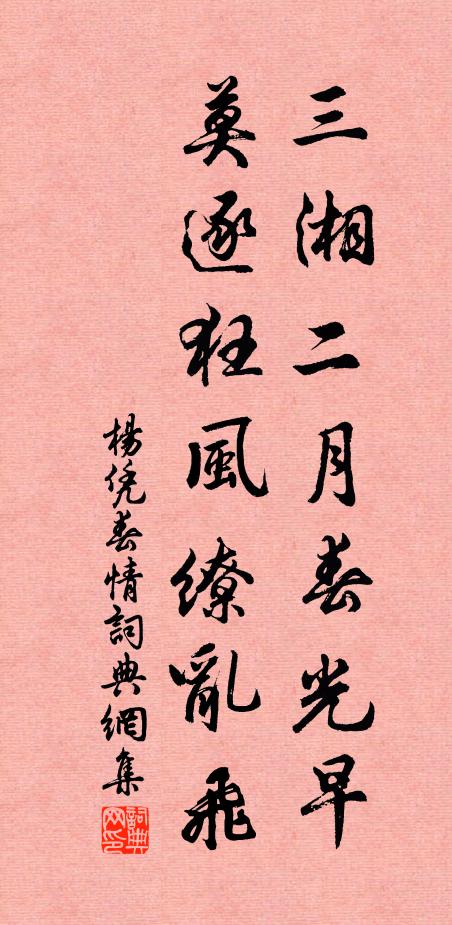 三湘二月春光早
莫逐狂風繚亂飛
楊凭春情詞典網集
詞典网印